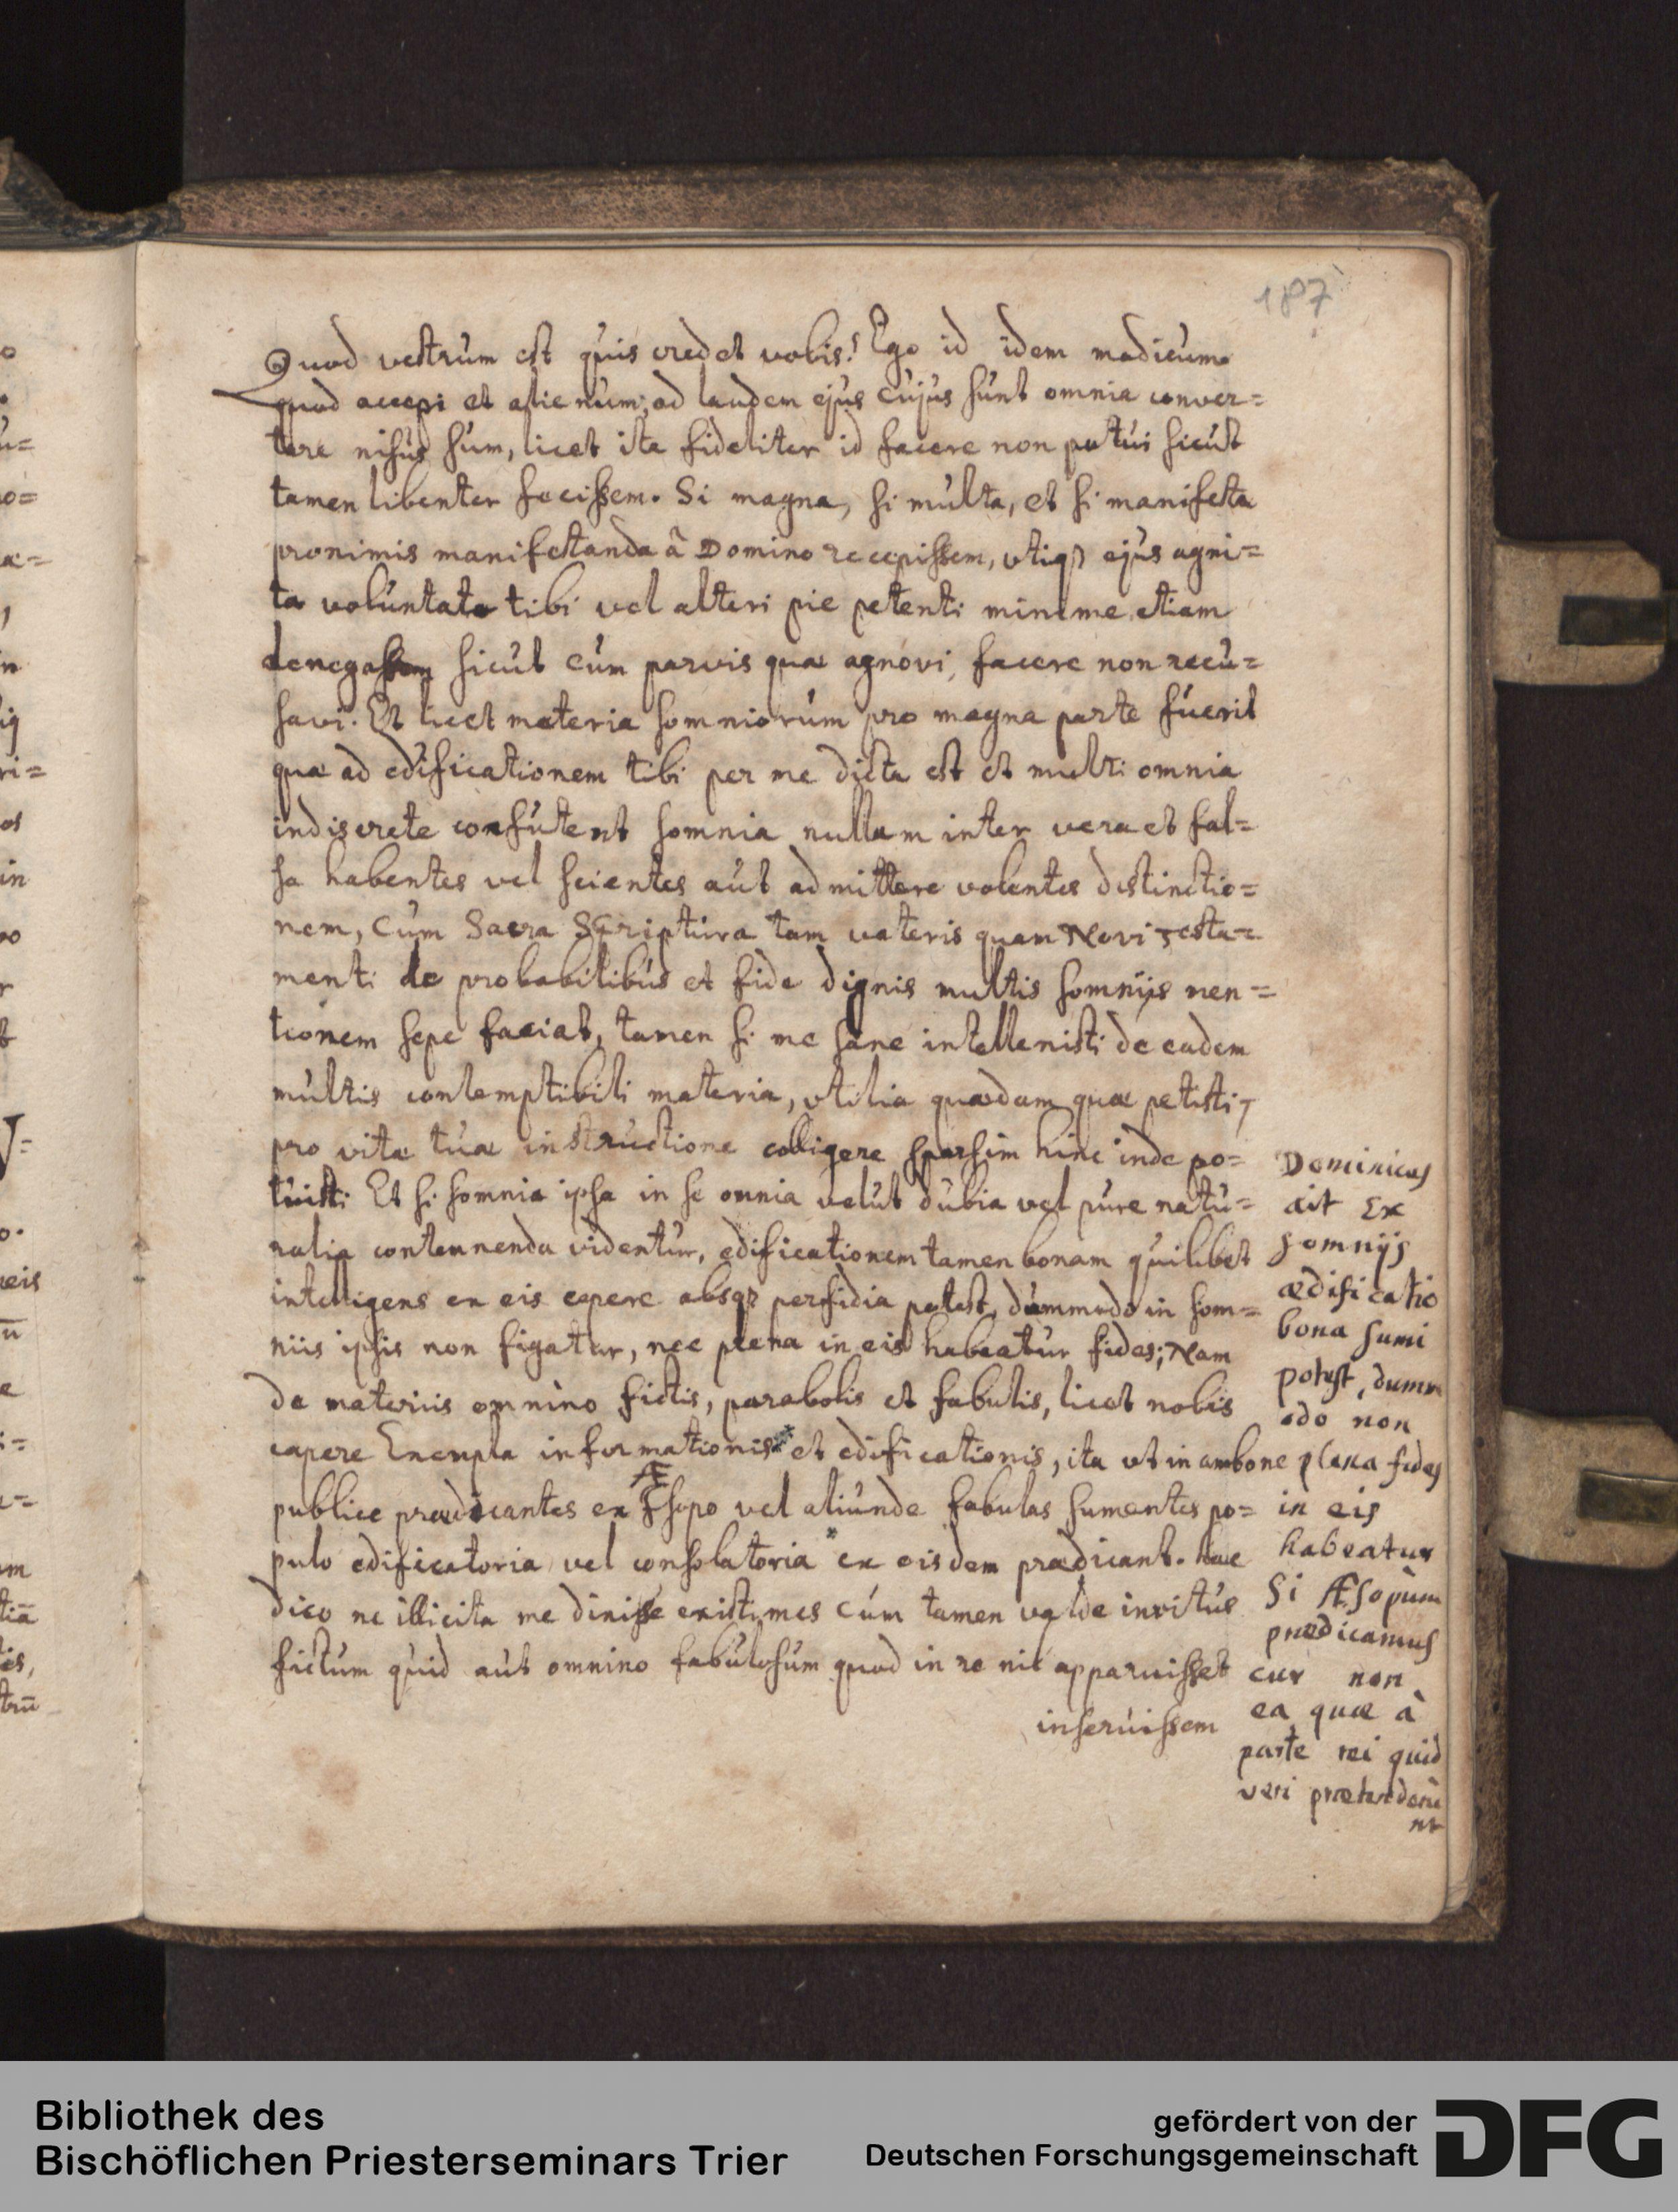 187
Quod vestrum est quis credet vobis! Ego id idem modicum
quod accepi et alienum, ad laudem ejus cujus sunt omnia conver=
tere nisus sum, licet ita fideliter id facere non potui sicut
tamen libenter fecissem. Si magna, si multa, et si manifesta
pronimis manifestanda â Domino recepissem, utiqꝫ ejus agni=
ta voluntate tibi vel alteri pie petenti minime etiam
denegassem sicut cum parvis quæ agnovi, facere non recu=
savi. Et licet materia somniorum pro magna parte fuerit
quæ ad edificationem tibi per me dicta est et multi omnia
indiscrete confutent somnia nullam inter vera et fal=
sa habentes vel scientes aut admittere volentes distinctio=
nem, Cum Sacra Scriptura tam veteris quam Novi Testa=
menti de probabilibus et fide dignis multis somnijs men=
tionem sepe faciat, tamen si me sane intellenisti de eadem
multis contemptibili materia, utilia quædam quæ petisti,
pro vitæ tuæ instructione colligere sparsim hinc inde po=
tuisti Et si somnia ipsa in se omnia velut dubia vel pure natu=
ralia contemnenda videntur, edificationem tamen bonam quilibet
intelligens en eis capere absqꝫ perfidia potest, dummodo in som=
niis ipsis non figatur, nec plena in eis habeatur fides; Nam
de materiis omnino fictis, parabolis et fabulis, licet nobis
capere Enempla informationis* et edificationis, ita ut in ambone
Æ
publice prædicantes en Esopo vel aliunde fabulas sumentes po=
pulo edificatoria vel consolatoria * en eisdem prædicant. Hæc
dico ne illicita me dinisse existimes cum tamen valde invitus
fictum quid aut omnino fabulosum quod in re nil apparuisset
inseruissem
Dominicus
ait Ex
somnijs
ædificatio
bona sumi
potest, dumm
odo non
plena fides
in eis
habeatur
Si Æsopum
prædicamus
cur non
ea quæ à
parte rei quid
veri prætendere
nt
Bibliothek des
Bischöflichen Priesterseminars Trier
gefördert von der
Deutschen Forschungsgemeinschaft
DFG